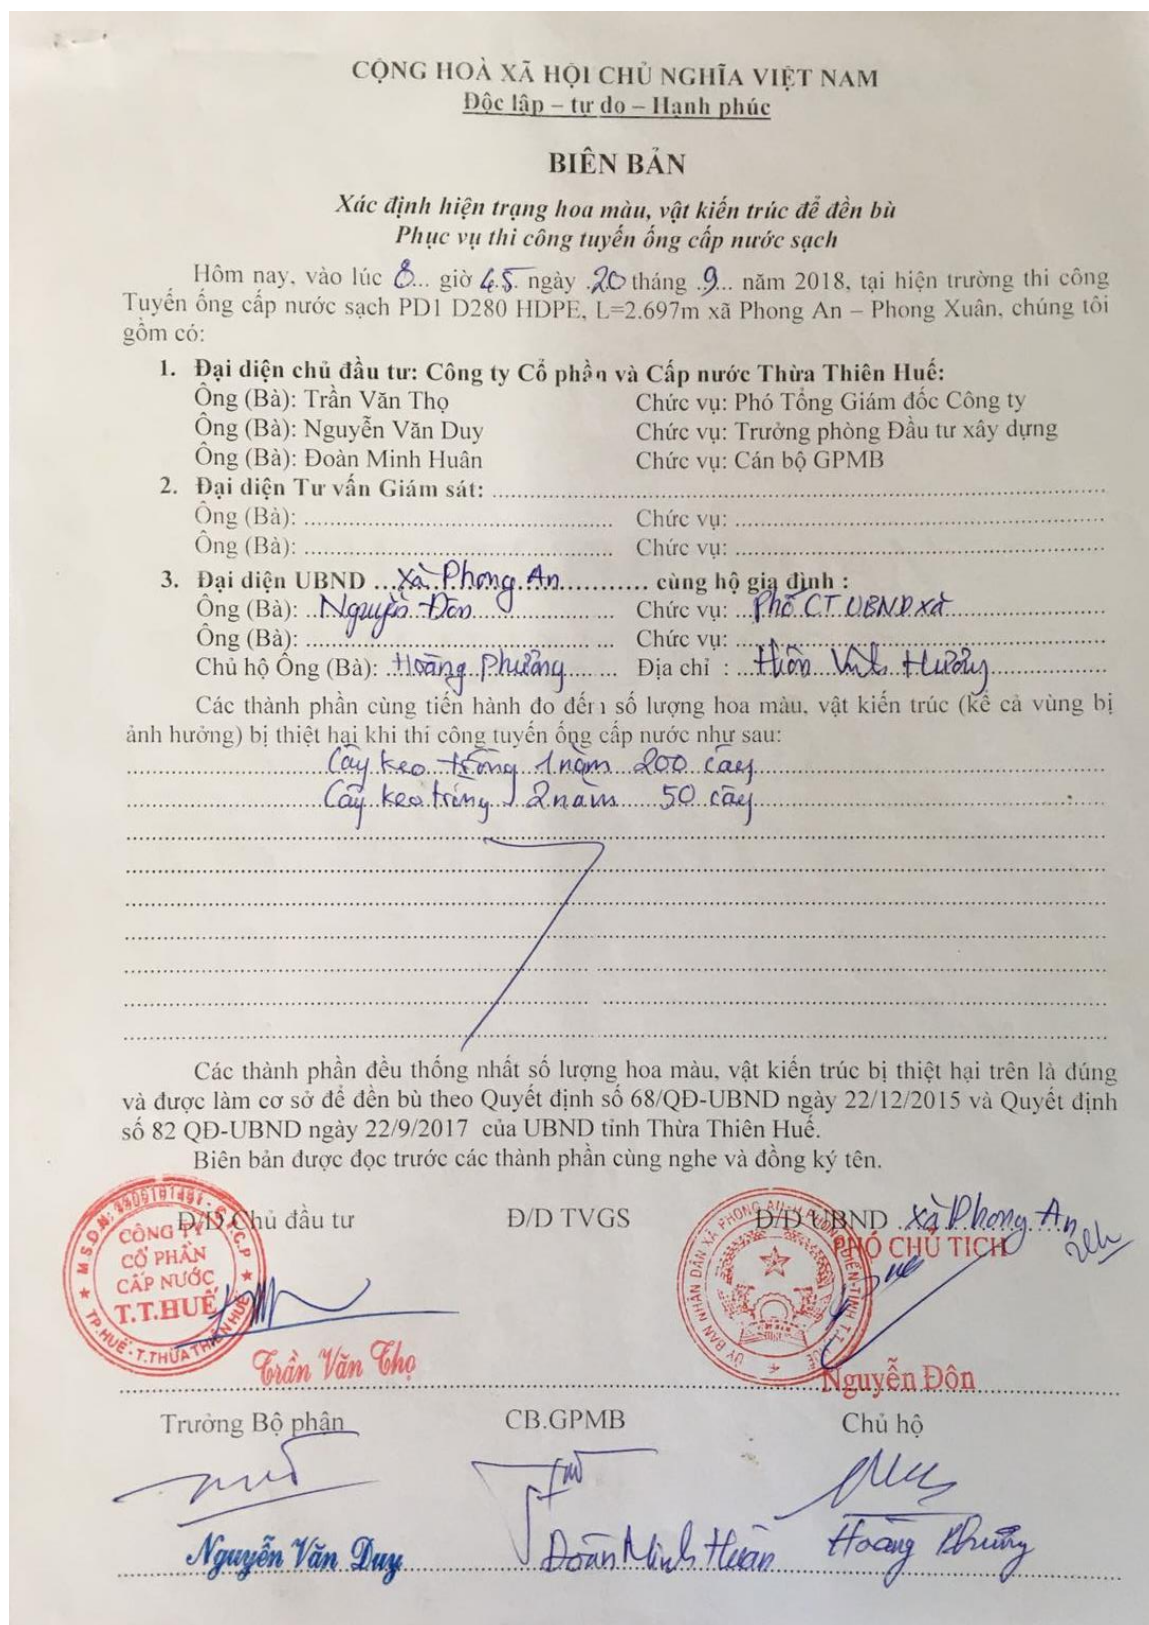 CỘNG HOÀ XÃ HỘI CHỦ NGHĨA VIỆT NAM
Độc lập – tự do – Hạnh phúc
BIÊN BẢN
Xác định hiện trạng hoa màu, vật kiến trúc để đền bù
Phục vụ thi công tuyến ống cấp nước sạch
Hôm nay, vào lúc 8... giờ 45. ngày .20 tháng .9... năm 2018, tại hiện trường thi công
Tuyến ống cấp nước sạch PD1 D280 HDPE, L=2.697m xã Phong An – Phong Xuân, chúng tôi
gồm có:
1. Đại diện chủ đầu tư: Công ty Cổ phần và Cấp nước Thừa Thiên Huế:
Ông (Bà): Trần Văn Thọ Chức vụ: Phó Tổng Giám đốc Công ty
Ông (Bà): Nguyễn Văn Duy Chức vụ: Trưởng phòng Đầu tư xây dựng
Ông (Bà): Đoàn Minh Huân Chức vụ: Cán bộ GPMB
2. Đại diện Tư vấn Giám sát: ........................
Ông (Bà): ........................ Chức vụ: ........................
Ông (Bà): ........................ Chức vụ: ........................
3. Đại diện UBND ...xã Phong An............ cùng hộ gia đình :
Ông (Bà): ..Nguyễn Đôn............ Chức vụ: ...Phó CT UBND xã............
Ông (Bà): ........................ Chức vụ: ........................
Chủ hộ Ông (Bà): ..Hoàng Phường............ Địa chỉ : ...............
Các thành phần cùng tiến hành đo đếm số lượng hoa màu, vật kiến trúc (kể cả vùng bị
ảnh hưởng) bị thiệt hại khi thi công tuyến ống cấp nước như sau:
Cây keo trồng 1 năm 200 cây
Cây keo trồng 2 năm 50 cây
Các thành phần đều thống nhất số lượng hoa màu, vật kiến trúc bị thiệt hại trên là đúng
và được làm cơ sở để đền bù theo Quyết định số 68/QĐ-UBND ngày 22/12/2015 và Quyết định
số 82 QĐ-UBND ngày 22/9/2017 của UBND tỉnh Thừa Thiên Huế.
Biên bản được đọc trước các thành phần cùng nghe và đồng ký tên.
Đ/D Chủ đầu tư Đ/D TVGS Đ/D UBND ..xã Phong An
PHÓ CHỦ TỊCH
CÔNG TY
CỔ PHẦN
CẤP NƯỚC
T.T.HUẾ
TP.HUẾ - T.THỪA THIÊN HUẾ
Trần Văn Thọ Nguyễn Đôn
Trưởng Bộ phận CB.GPMB Chủ hộ
Nguyễn Văn Duy Đoàn Minh Huân Hoàng Phường